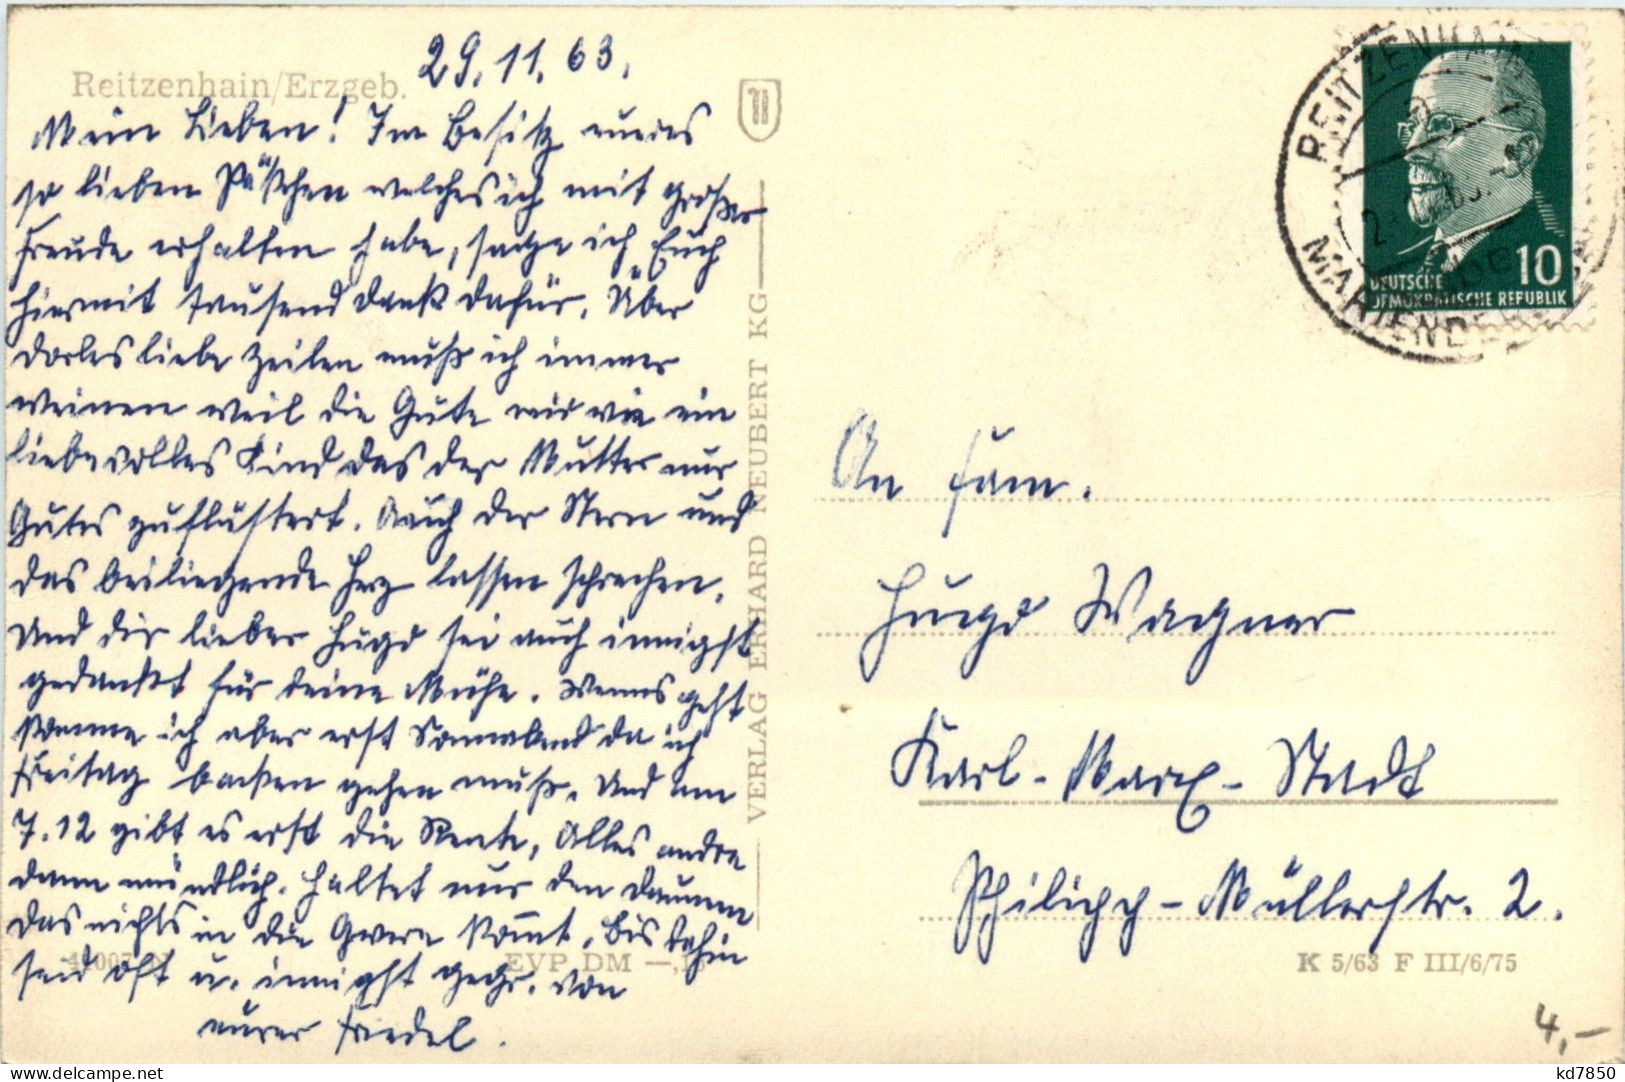 29.11.63.
Reitzenhain/Erzgeb.
Mein Lieben! Im Besitz eueres
so lieben Päckchen welches ich mit großer
Freude erhalten habe, sage ich Euch
hiermit tausend Dank dafür. Über
liebe Zeilen muß ich immer
weinen weil die Güte mir wie ein
liebevolles Kind das der Mutter nur
Gutes zuflüstert. Auch der Stern und
das beiliegende Herz lassen sprechen.
Und dir lieber Hugo sei auch innigst
gedankt für deine Mühe. Wenns geht
komme ich aber erst Sonnabend da ich
Freitag backen gehen muß. Und am
7.12 gibt es erst die Rente, Alles andre
dann mündlich. Haltet nur den Daumen
das nichts in die Quere kommt. Bis dahin
seid oft u. innigst gegr. von
eurer Friedel.
VERLAG ERHARD NEUBERT KG
EVP DM
REITZENHAIN
MARIENBERG
10
DEUTSCHE
DEMOKRATISCHE REPUBLIK
An Fam.
Hugo Wagner
Karl-Marx-Stadt
Philipp-Müllerstr. 2.
K 5/63 F III/6/75
4,-
kd7850